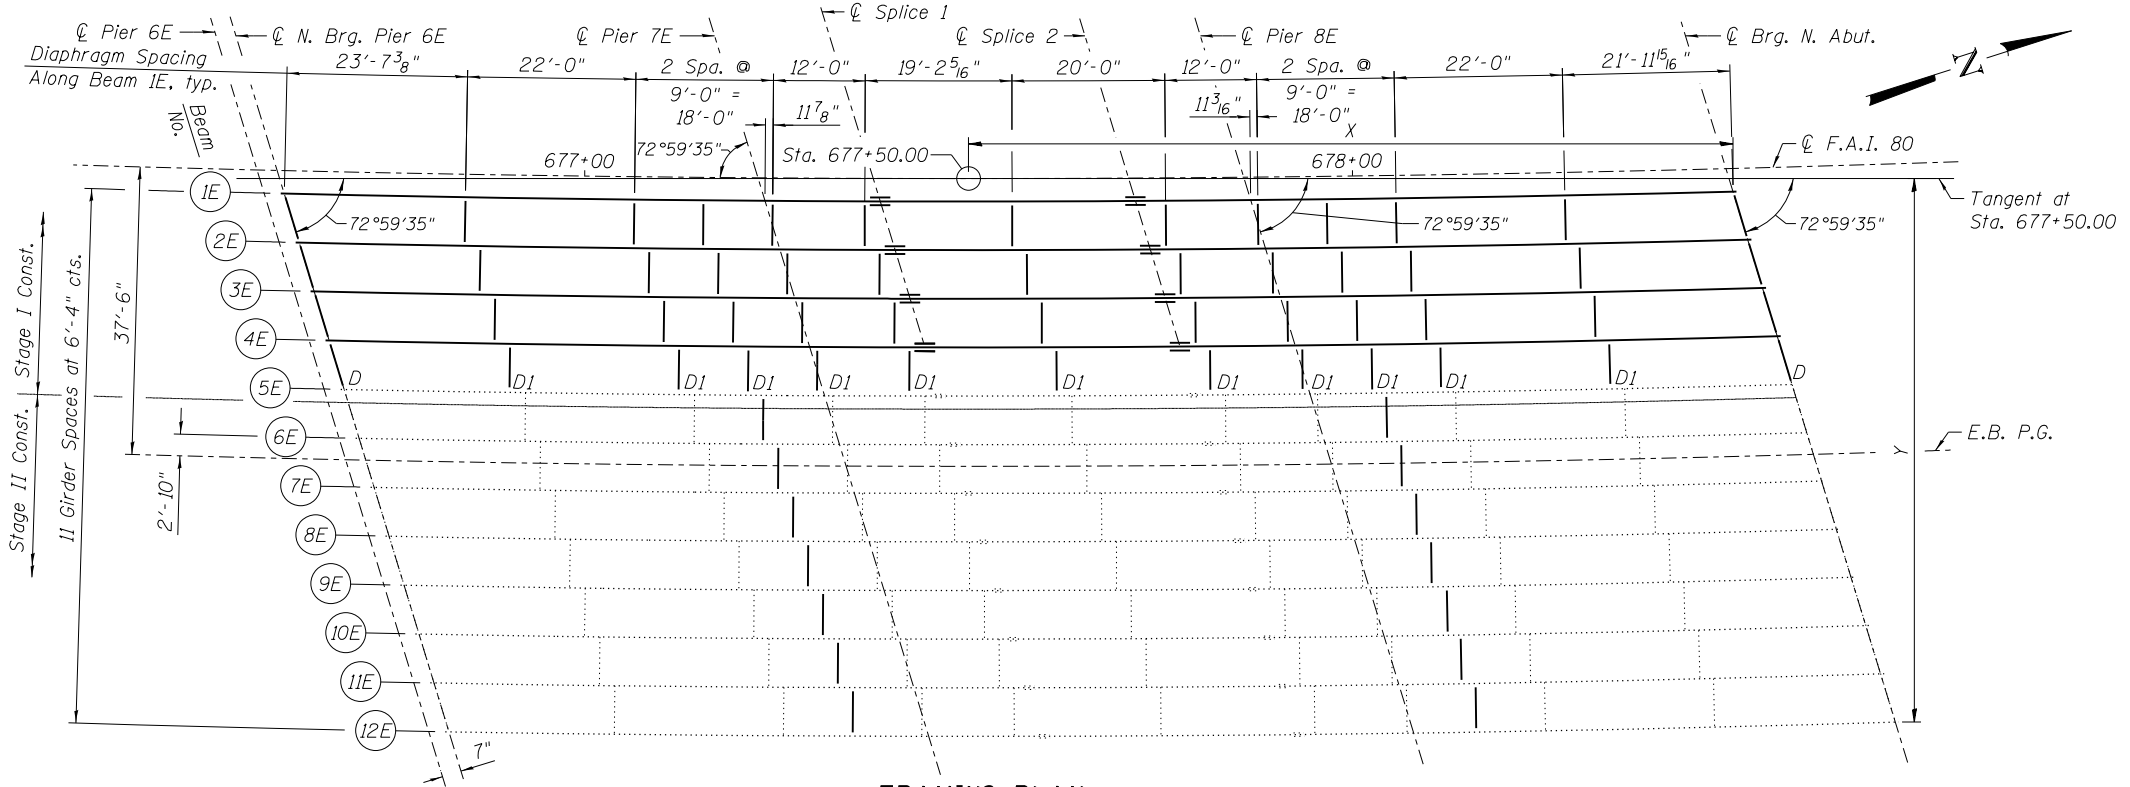 ℄ Pier 6E
℄ N. Brg. Pier 6E
℄ Pier 7E
℄ Splice 1
℄ Splice 2
℄ Pier 8E
℄ Brg. N. Abut.
Diaphragm Spacing
Along Beam 1E, typ.
23'-7 3/8"
22'-0"
2 Spa. @
9'-0" =
18'-0"
12'-0"
19'-2 5/16"
20'-0"
12'-0"
2 Spa. @
9'-0" =
18'-0"
22'-0"
21'-11 15/16"
N
11 7/8"
11 3/16"
Beam
No.
72°59'35"
677+00
Sta. 677+50.00
X
678+00
℄ F.A.I. 80
Tangent at
Sta. 677+50.00
72°59'35"
72°59'35"
72°59'35"
1E
2E
3E
4E
5E
6E
7E
8E
9E
10E
11E
12E
Stage I Const.
Stage II Const.
11 Girder Spaces at 6'-4" cts.
37'-6"
2'-10"
D
D1
D1
D1
D1
D1
D1
D1
D1
D1
D1
D1
D
Y
E.B. P.G.
7"